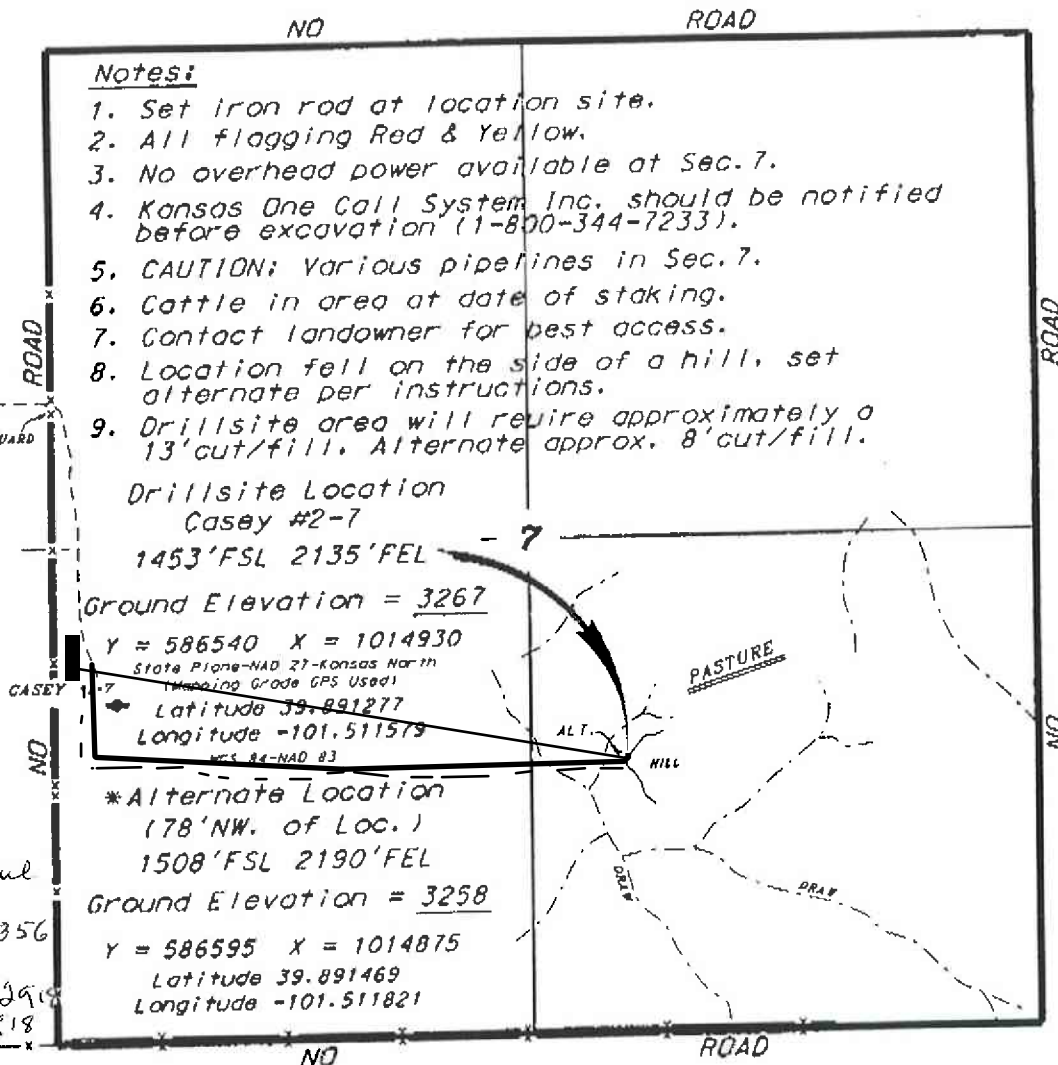 NO ROAD
Notes:
1. Set iron rod at location site.
2. All flagging Red & Yellow.
3. No overhead power available at Sec. 7.
4. Kansas One Call System Inc. should be notified
before excavation (1-800-344-7233).
5. CAUTION: Various pipelines in Sec. 7.
6. Cattle in area at date of staking.
7. Contact landowner for best access.
8. Location fell on the side of a hill, set
alternate per instructions.
9. Drillsite area will reuire approximately a
13'cut/fill. Alternate approx. 8'cut/fill.
ROAD
ROAD
Drillsite Location
Casey #2-7
1453'FSL 2135'FEL
- 7
Ground Elevation = 3267
Y = 586540 X = 1014930
State Plane-NAD 27-Kansas North
(Mapping Grade GPS Used)
CASEY -7
Latitude 39.891277
Longitude -101.511579
84-NAD 83
PASTURE
ALT.
HILL
NO
NO
*Alternate Location
(78'NW. of Loc.)
1508'FSL 2190'FEL
Ground Elevation = 3258
356
Y = 586595 X = 1014875
Latitude 39.891469
Longitude -101.511821
DRAW
DRAW
NO ROAD